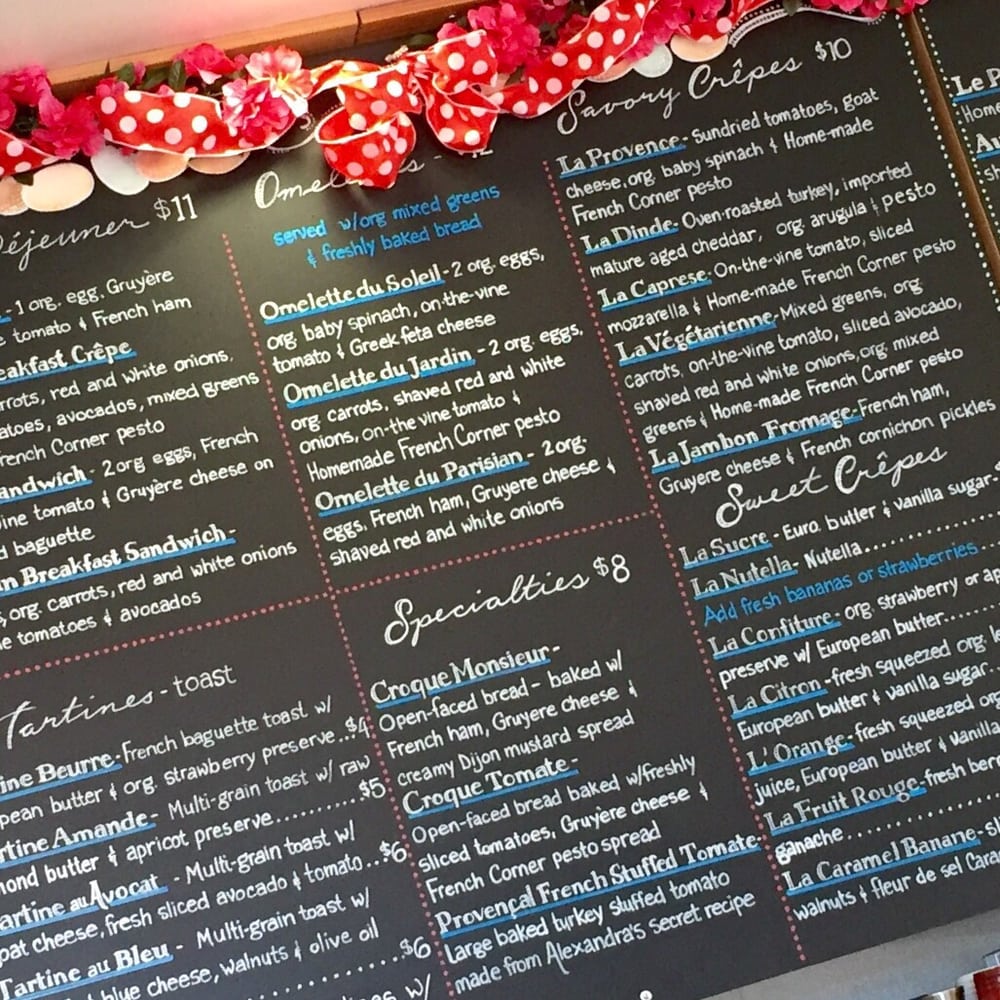 Déjeuner $11
- 1 org. egg. Gruyère
tomato & French ham
Crêpe
red and white onions,
avocados, mixed greens
French Corner pesto
- 2 org eggs, French
tomato & Gruyère cheese on
baguette
Breakfast Sandwich -
org. carrots, red and white onions
tomatoes & avocados
Tartines - toast
Beurre - French baguette toast w/
butter & org. strawberry preserve..$4
Amande - Multi-grain toast w/ raw
butter & apricot preserve..........$5
au Avocat - Multi-grain toast w/
cheese, fresh sliced avocado & tomato...$6
Tartine au Bleu - Multi-grain toast w/
blue cheese, walnuts & olive oil
$6
w/
served w/org mixed greens
& freshly baked bread
Omelette du Soleil - 2 org. eggs,
org baby spinach, on-the-vine
tomato & Greek feta cheese
Omelette du Jardin - 2 org. eggs,
org. carrots, shaved red and white
onions, on-the vine tomato &
Homemade French Corner pesto
Omelette du Parisian - 2 org.
eggs, French ham, Gruyere cheese &
shaved red and white onions
Specialties $8
Croque Monsieur -
Open-faced bread - baked w/
French ham, Gruyere cheese &
creamy Dijon mustard spread
Croque Tomate -
Open-faced bread baked w/freshly
sliced tomatoes, Gruyere cheese &
French Corner pesto spread
Provençal French Stuffed Tomate
large baked turkey stuffed tomato
made from Alexandra's secret recipe
Savory Crêpes $10
La Provence - Sundried tomatoes, goat
cheese, org baby spinach & Home-made
French Corner pesto
La Dinde - Oven-roasted turkey, imported
mature aged cheddar, org arugula & pesto
La Caprese - On-the-vine tomato, sliced
mozzarella & Home-made French Corner pesto
La Végétarienne - Mixed greens, org
carrots, on-the-vine tomato, sliced avocado,
shaved red and white onions, org. mixed
greens & Home-made French Corner pesto
La Jambon Fromage - French ham,
Gruyere cheese & French cornichon pickles
Sweet Crêpes
La Sucre - Euro. butter & vanilla sugar-
La Nutella - Nutella..............
Add fresh bananas or strawberries
La Confiture - org. strawberry or
preserve w/ European butter......
La Citron - fresh squeezed org.
European butter & vanilla sugar.
L'Orange - fresh squeezed
juice, European butter & vanilla
La Fruit Rouge - fresh
ganache..............
La Caramel Banane -
walnuts & fleur de sel
Le